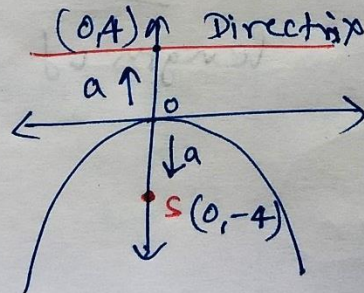 (0,4) Directrix
a
O
a
S (0,-4)